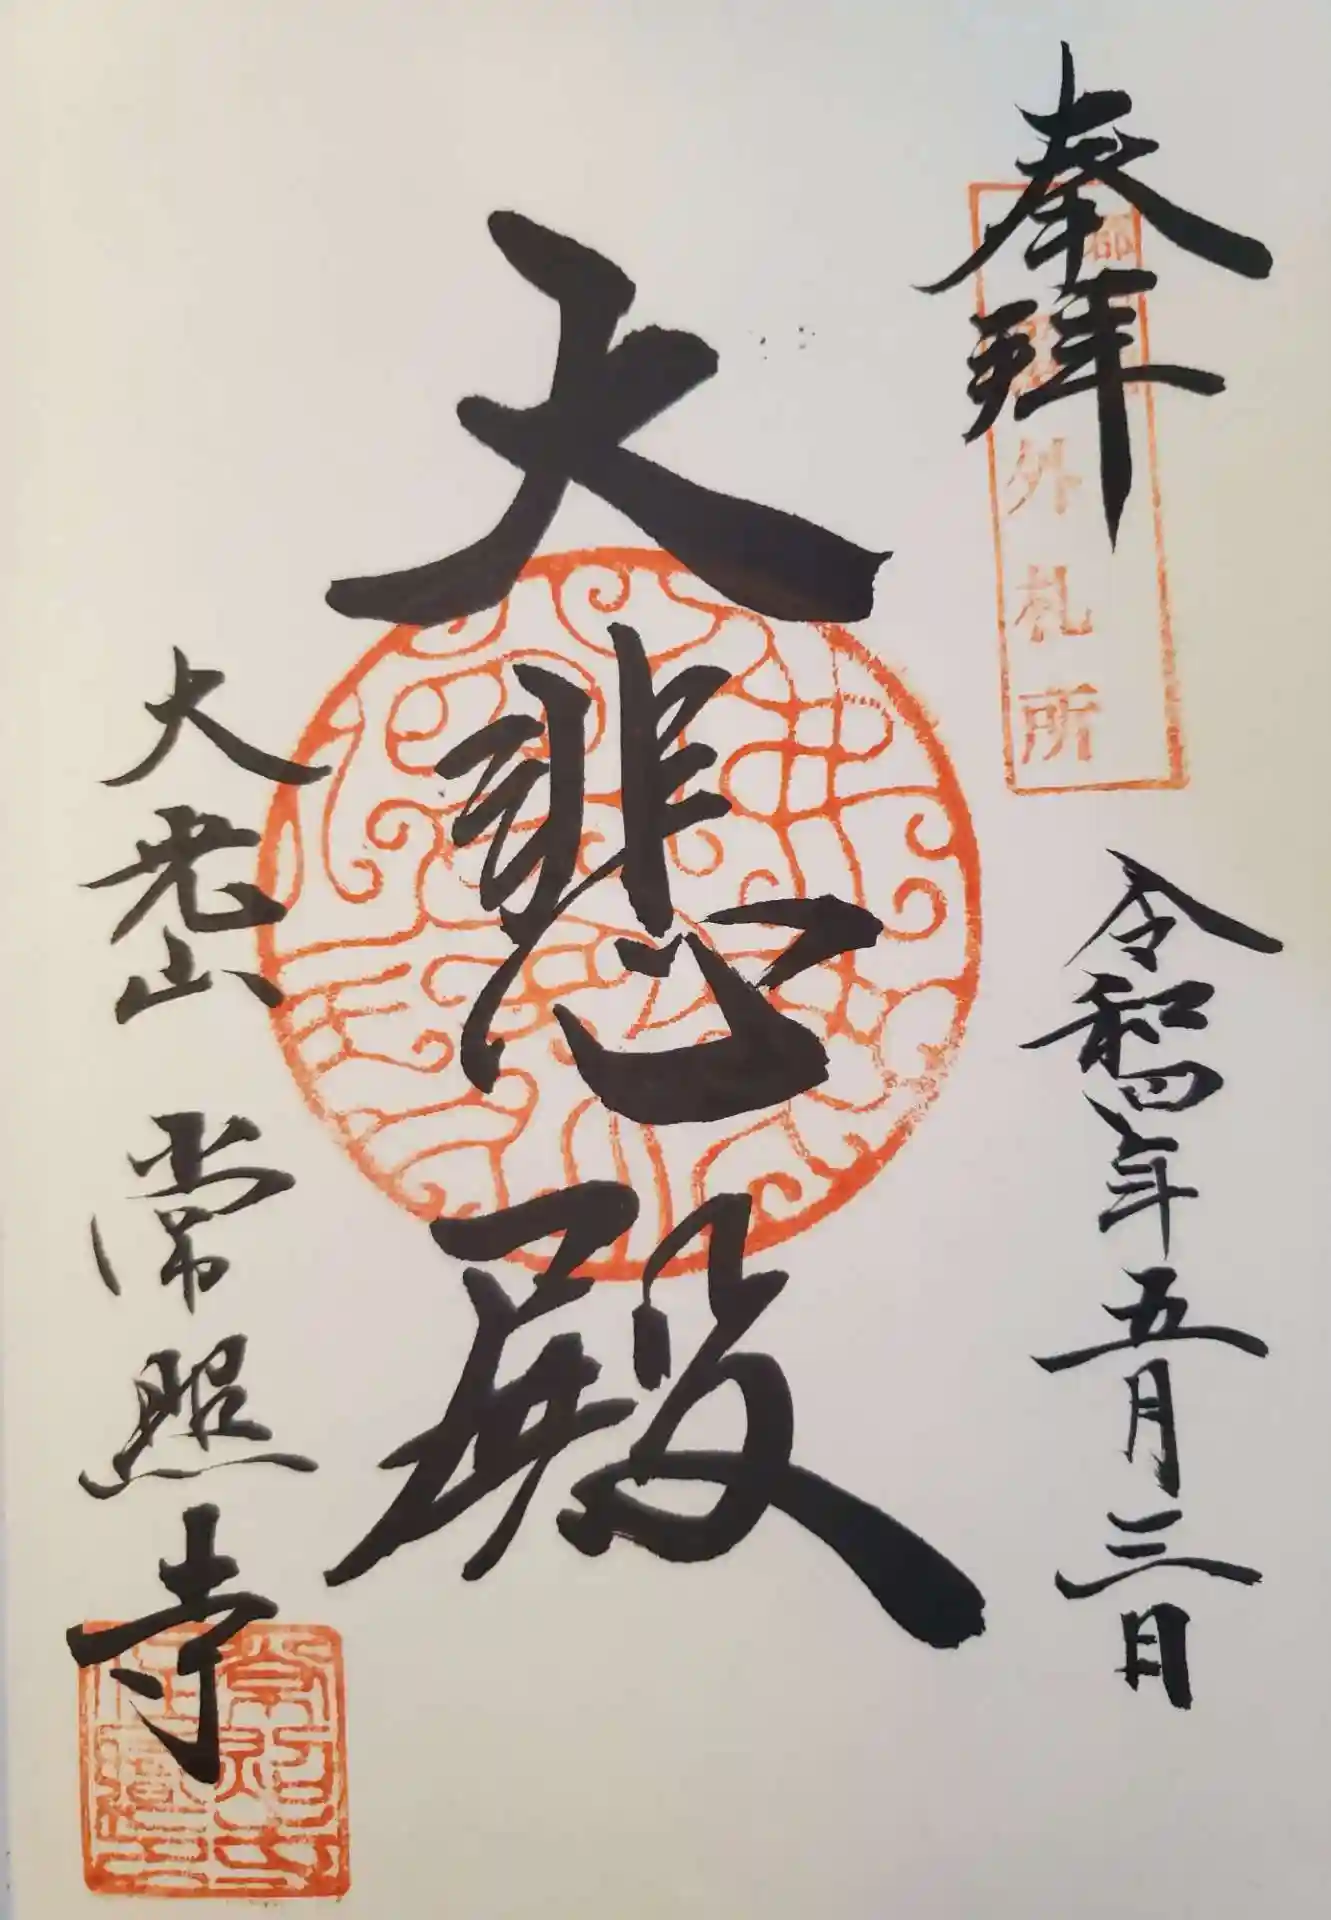 奉拝
外札所
令和四年五月三日
大悲殿
大老山 常照寺